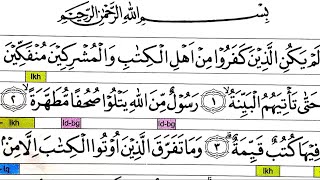 بِسْمِ اللّٰهِ الرَّحْمٰنِ الرَّحِيْمِ
لَمْ يَكُنِ الَّذِيْنَ كَفَرُوْا مِنْ اَهْلِ الْكِتٰبِ وَالْمُشْرِكِيْنَ مُنْفَكِّيْنَ
Ikh
حَتّٰى تَأْتِيَهُمُ الْبَيِّنَةُ ۙ ١ رَسُوْلٌ مِّنَ اللّٰهِ يَتْلُوْا صُحُفًا مُّطَهَّرَةً ۙ ٢
Ikh Id-bg Id-bg
فِيْهَا كُتُبٌ قَيِّمَةٌ ۗ ٣ وَمَا تَفَرَّقَ الَّذِيْنَ اُوْتُوا الْكِتٰبَ اِلَّا مِنْۢ
Ikh